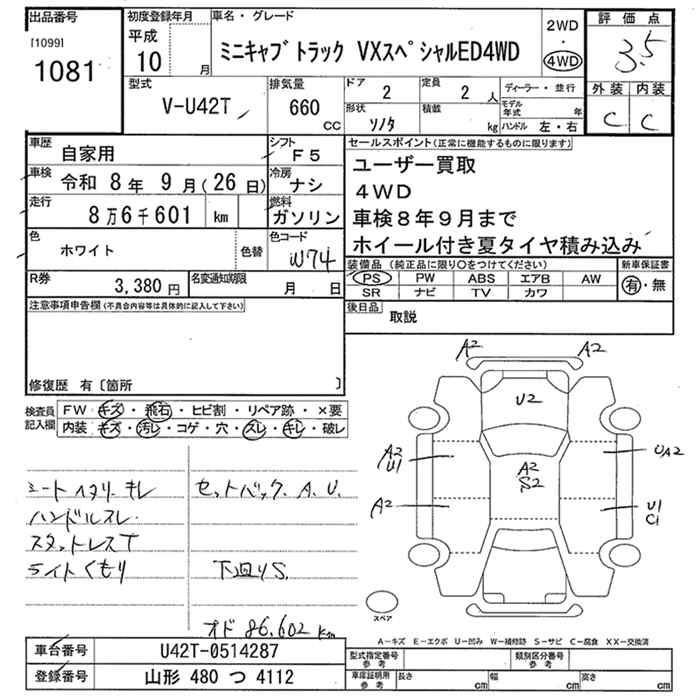 出品番号
[1099]
1081
初度登録年月
平成
10 月
車名・グレード
ミニキャブトラック VXスペシャルED4WD
2WD
・
4WD
評価点
3.5
外装 内装
C C
型式
V-U42T
排気量
660
CC
ドア
2
定員
2 人
形状
ソノタ
積載
kg
ディーラー・並行
モデル年式 年
ハンドル 左・右
車歴
自家用
シフト
F5
車検
令和 8年 9月(26日)
冷房
ナシ
走行
8万6千601 km
燃料
ガソリン
色
ホワイト
色替
色コード
W74
R券
3,380円
名変通知期限
月 日
セールスポイント(正常に機能するものに限ります)
ユーザー買取
4WD
車検8年9月まで
ホイール付き夏タイヤ積み込み
装備品(純正品に限り○をつけてください)
PS PW ABS エアB AW
SR ナビ TV カワ
新車保証書
有・無
後日品
取説
注意事項申告欄(不具合内容等は具体的に記入して下さい)
修復歴 有〔箇所 〕
検査員記入欄
FW キズ・飛石・ヒビ割・リペア跡・×要
内装 キズ・汚レ・コゲ・穴・スレ・キレ・破レ
シートヘタリ. キレ
ハンドルスレ.
スタットレスT
ライトくもり
セットバック. A. U.
下廻りS.
オド 86,602 km
A2 A2
U2
A2
U1
A2
S2
UA2
A2
U1
C1
スペア
A-キズ E-エクボ U-凹み W-補修跡 S-サビ C-腐食 XX-交換済
車台番号
U42T-0514287
登録番号
山形 480 つ 4112
型式指定番号
参考
類別区分番号
参考
車庫証明用
参考
長さ cm
幅 cm
高さ cm